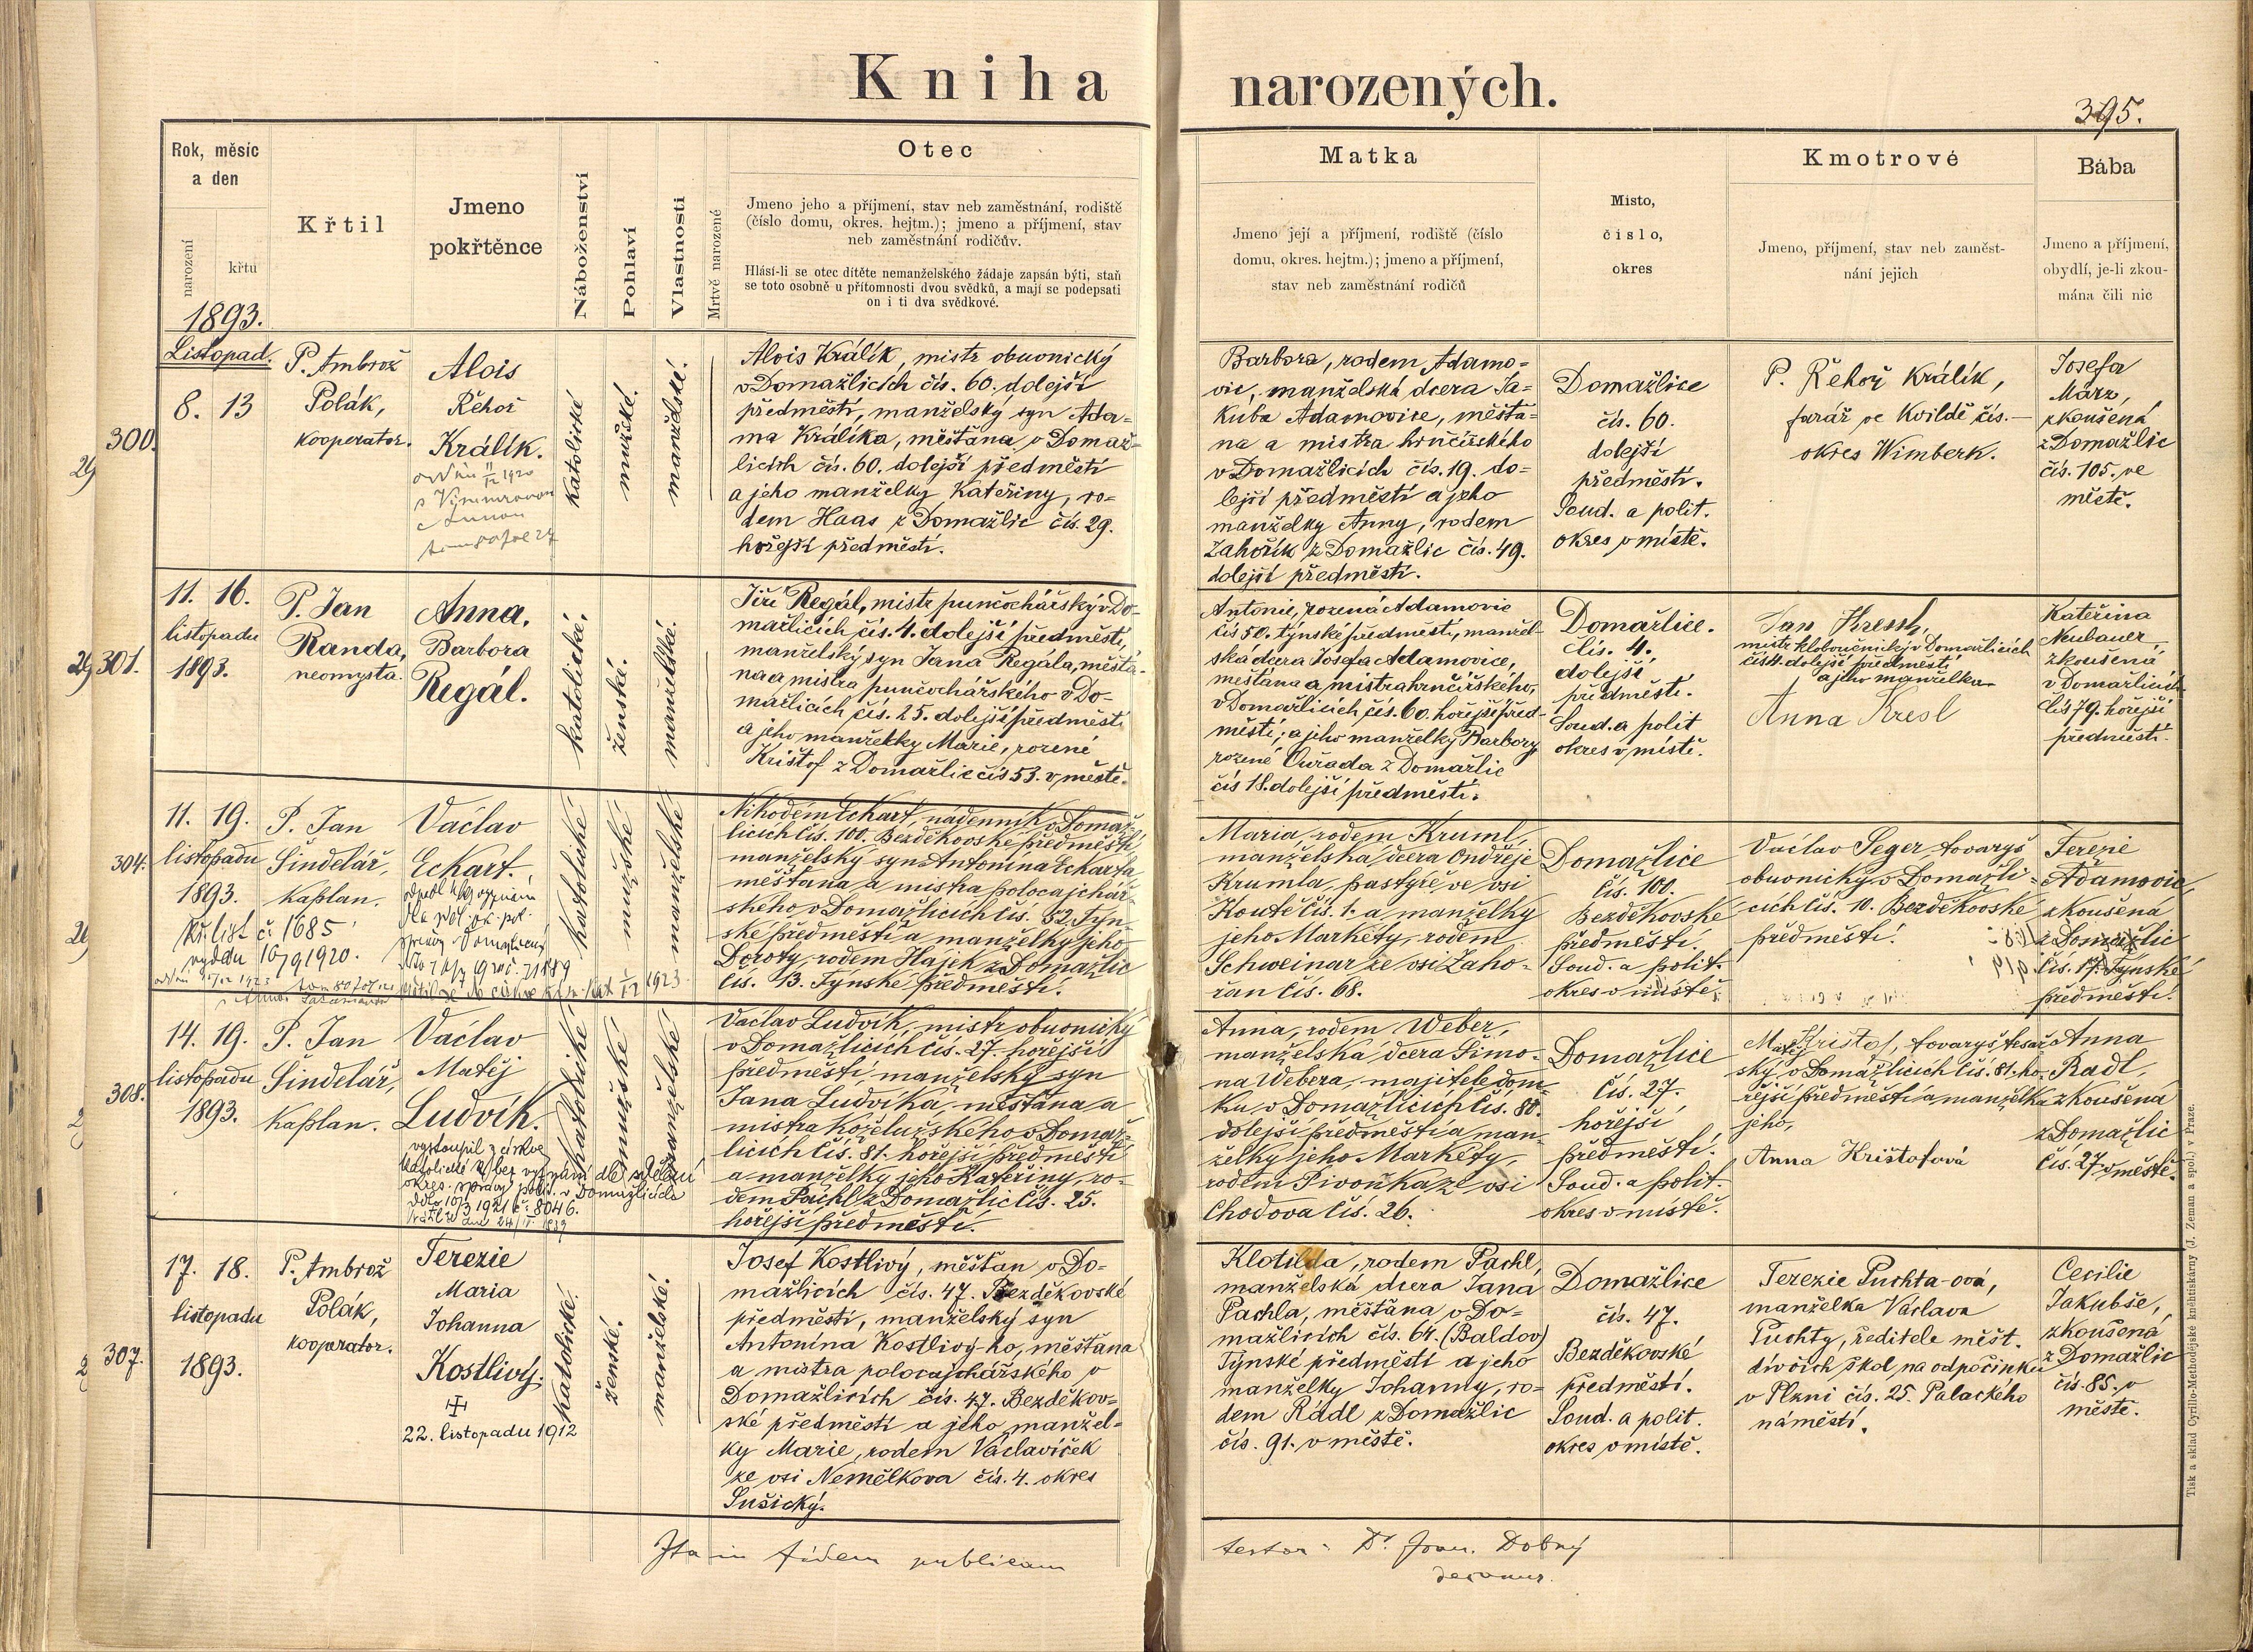 Kniha narozených.
395.
Rok, měsíc
a den
narození
křtu
Křtil
Jmeno
pokřtěnce
Náboženství
Pohlaví
Vlastnosti
Mrtvě narozené
Otec
Jmeno jeho a příjmení, stav neb zaměstnání, rodiště
(číslo domu, okres. hejtm.); jmeno a příjmení, stav
neb zaměstnání rodičův.
Hlásí-li se otec dítěte nemanželského žádaje zapsán býti, staň
se toto osobně u přítomnosti dvou svědků, a mají se podepsati
on i ti dva svědkové.
Matka
Jmeno její a příjmení, rodiště (číslo
domu, okres. hejtm.); jmeno a příjmení,
stav neb zaměstnání rodičů
Misto,
čislo,
okres
Kmotrové
Jmeno, příjmení, stav neb zaměst-
nání jejich
Bába
Jmeno a příjmení,
obydlí, je-li zkou-
mána čili nic
1893.
Listopad.
300.
8. 13
P. Ambrož
Polák,
kooperator.
Alois
Řehoř
Králík.
katolické
mužské.
manželské.
Alois Králík, mistr obuvnický
v Domažlicích čís. 60. dolejší
předměstí, manželský syn Ada-
ma Králíka, měšťana v Domaž-
licích čís. 60. dolejší předměstí
a jeho manželky Kateřiny, ro-
dem Haas z Domažlic čís. 29.
hořejší předměstí.
Barbora, rodem Adamo-
vic, manželská dcera Ja-
kuba Adamovice, měšťa-
na a mistra hrnčířského
v Domažlicích čís. 19. do-
lejší předměstí a jeho
manželky Anny, rodem
Zahořík z Domažlic čís. 49.
dolejší předměstí.
Domažlice
čís. 60.
dolejší
předměstí.
Soud. a polit.
okres v místě.
P. Řehoř Králík,
farář ve Kvildě čís. —
okres Wimberk.
Josefa
März,
zkoušená
z Domažlic
čís. 105. ve
městě.
301.
11. 16.
listopadu
1893.
P. Jan
Randa,
neomysta.
Anna,
Barbora
Regál.
katolická.
ženské.
manželská.
Jiří Regál, mistr punčochářský v Do-
mažlicích čís. 4. dolejší předměstí,
manželský syn Jana Regála, měšťa-
na a mistra punčochářského v Do-
mažlicích čís. 25. dolejší předměstí
a jeho manželky Marie, rozené
Krištof z Domažlic čís 53. v městě.
Antonie, rozená Adamovic
čís 50. týnské předměstí, manžel-
ská dcera Josefa Adamovice,
měšťana a mistra hrnčířského,
v Domažlicích čís. 60. hořejší před-
městí; a jeho manželky Barbory,
rozené Čuřada z Domažlic
čís 18. dolejší předměstí.
Domažlice.
čís. 4.
dolejší
předměstí.
Soud. a polit
okres v místě.
mistr kloboučnický v Domažlicích
čís 4. dolejší předměstí
a jeho manželka
Anna Kresl
Kateřina
Neubauer
zkoušená
v Domažlicích
čís 79. hořejší
předměstí.
304.
11. 19.
listopadu
1893.
P. Jan
Šindelář,
kaplan.
Václav
Eckart.
kř. list č 1685
vydán 16/9 1920.
katolické
mužské
manželské
Nikodém Eckart, nádenník v Domaž-
licích čís. 100. Bezděkovské předměstí
manželský syn Antonína Eckarta
měšťana a mistra polocajchář-
ského v Domažlicích čís. 52. Týn-
ské předměstí a manželky jeho
Doroty, rodem Hájek z Domažlic
čís. 13. Týnské předměstí.
Maria, rodem Kruml,
manželská dcera Ondřeje
Krumla, pastýře ve vsi
Koutě čís. 1. a manželky
jeho Markéty, rodem
Schweinar ze vsi Zaho-
řan čís. 68.
Domažlice
čís. 100.
Bezděkovské
předměstí.
Soud. a polit.
okres v místě.
Václav Seger tovaryš
obuvnický v Domažli-
cích čís. 10. Bezděkovské
předměstí.
Terezie
Adamovic,
zkoušená
z Domažlic
čís. 17. Týnské
předměstí.
308.
14. 19.
listopadu
1893.
P. Jan
Šindelář,
kaplan.
Václav
Matěj
Ludvík.
vystoupil z církve
katolické
katolické
mužské
manželské
Václav Ludvík, mistr obuvnický
v Domažlicích čís. 27. hořejší
předměstí, manželský syn
Jana Ludvíka, měšťana a
mistra koželužského v Domaž-
licích čís. 81. hořejší předměstí
a manželky jeho Kateřiny, ro-
dem Pachl z Domažlic čís. 25.
hořejší předměstí.
Anna, rodem Weber,
manželská dcera Šimo-
na Webera, majitele dom-
ku v Domažlicích čís. 80.
dolejší předměstí a man-
želky jeho Markéty,
rodem Pivoňka ze vsi
Chodova čís. 26.
Domažlice
čís. 27.
hořejší
předměstí.
Soud. a polit.
okres v místě.
Matěj Krištof, tovaryš tesař-
ský v Domažlicích čís. 81. ho-
řejší předměstí a manželka
jeho,
Anna Krištofová
Anna
Radl,
zkoušená
z Domažlic
čís. 27 v městě.
307.
17. 18.
listopadu
1893.
P. Ambrož
Polák,
kooperator.
Terezie
Maria
Johanna
Kostlivý.
22. listopadu 1912
katolické.
ženské.
manželské.
Josef Kostlivý, měšťan v Do-
mažlicích čís. 47. Bezděkovské
předměstí, manželský syn
Antonína Kostlivý-ho, měšťana
a mistra polocajchářského v
Domažlicích čís. 47. Bezděkov-
ské předměstí a jeho manžel-
ky Marie, rodem Václavíček
ze vsi Nemělkova čís. 4. okres
Sušický.
Klotilda, rodem Pachl,
manželská dcera Jana
Pachla, měšťana v Do-
mažlicích čís. 64. (Baldov)
Týnské předměstí a jeho
manželky Johanny, ro-
dem Rádl z Domažlic
čís. 91. v městě.
Domažlice
čís. 47.
Bezděkovské
předměstí.
Soud. a polit.
okres v místě.
Terezie Puchta-ová,
manželka Václava
Puchty, ředitele měšt.
dívčích škol na odpočinku
v Plzni čís. 25. Palackého
náměstí.
Cecilie
Jakubše,
zkoušená
z Domažlic
čís. 85. v
městě.
Ita in fidem publicam
testor: Dr. Joan. Dobrý
Tisk a sklad Cyrillo-Methodějské knihtiskárny (J. Zeman a spol.) v Praze.